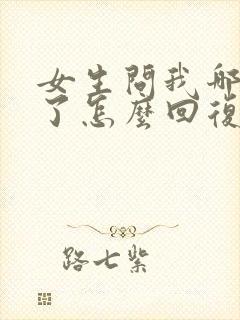 女生問我哪
了怎麼回復
路七紫